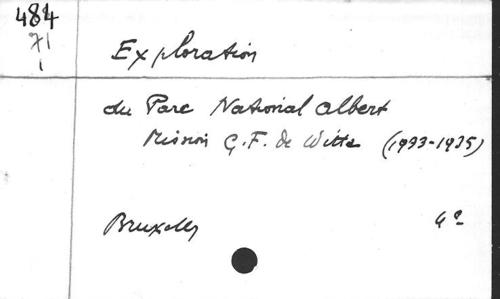 484
71
1
Exploration
du Parc National Albert
Mission G.F. de Witte (1933-1935)
Bruxelles 4°